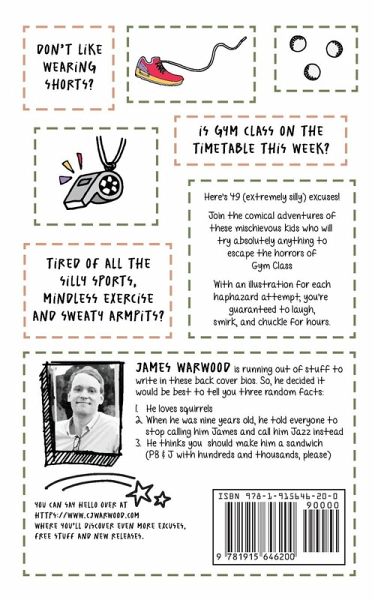 DON'T LIKE
WEARING
SHORTS?
IS GYM CLASS ON THE
TIMETABLE THIS WEEK?
Here's 49 (extremely silly) excuses!
Join the comical adventures of
these mischievous kids who will
try absolutely anything to
escape the horrors of
Gym Class
With an illustration for each
haphazard attempt; you're
guaranteed to laugh,
smirk, and chuckle for hours.
TIRED OF ALL THE
SILLY SPORTS,
MINDLESS EXERCISE
AND SWEATY ARMPITS?
JAMES WARWOOD is running out of stuff to
write in these back cover bios. So, he decided it
would be best to tell you three random facts:
1. He loves squirrels
2. When he was nine years old, he told everyone to
stop calling him James and call him Jazz instead
3. He thinks you should make him a sandwich
(PB & J with hundreds and thousands, please)
YOU CAN SAY HELLO OVER AT
HTTPS://WWW.CJWARWOOD.COM
WHERE YOU'LL DISCOVER EVEN MORE EXCUSES,
FREE STUFF AND NEW RELEASES.
ISBN 978-1-915646-20-0
90000
9 781915 646200